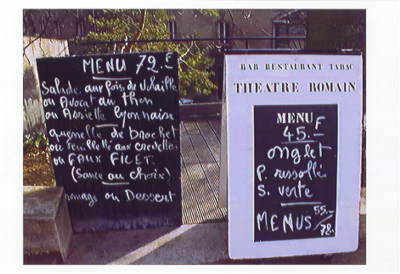 MENU 72.F
Salade aux foies de volaille
ou Avocat au thon
ou Assiette Lyonnaise
quenelle de brochet
ou feuilleté aux crevettes
ou FAUX FILET.
(Sauce au choix)
fromage ou Dessert
BAR RESTAURANT TABAC
THEATRE ROMAIN
MENU
45.F
onglet
P. rissollé
S. verte
MENUS 55.-/78.-